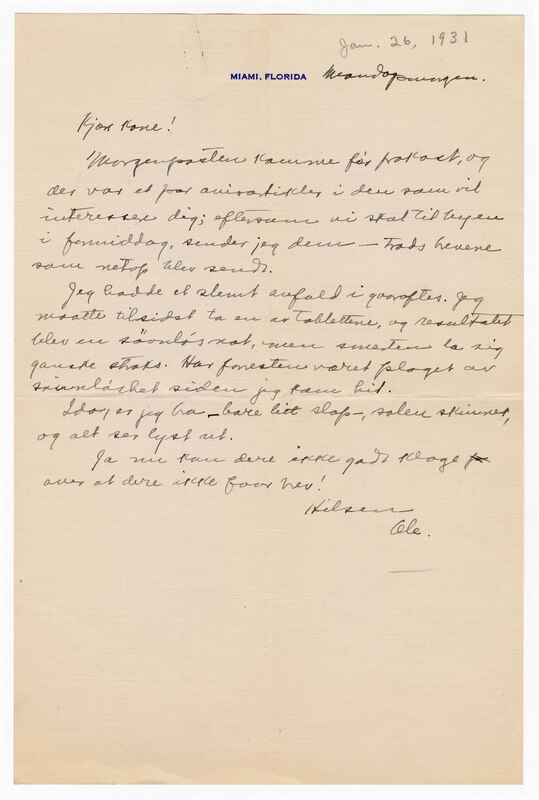 Jan. 26, 1931
MIAMI, FLORIDA
Mandagmorgen.
Kjær Kone!
Morgenposten kamme før frokost, og
der var et par avisartikler i den som vil
interessere dig; eftersom vi skal til byen
i formiddag, sender jeg dem — trods brevene
som netop blev sendt.
Jeg hadde et slemt anfald i gaaraftes. Jeg
maatte tilsidst ta en av tablettene, og resultatet
blev en søvnløs nat, men smerten la sig
ganske straks. Har forresten været plaget av
søvnløshet siden jeg kam hit.
Idag er jeg bra — bare litt slap —, solen skinner,
og alt ser lyst ut.
Ja nu kan dere ikke godt klage
over at dere ikke faar brev!
Hilsen
Ole.